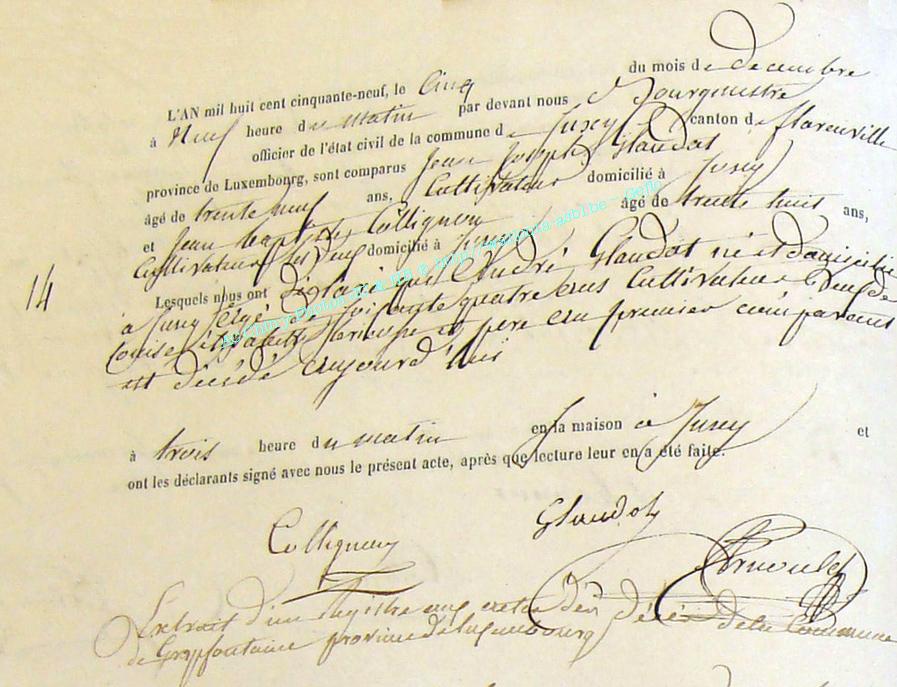 L'AN mil huit cent cinquante-neuf, le Cinq du mois de decembre
à Neuf heure du matin par devant nous Bourgmestre
officier de l'état civil de la commune de Jusey canton de florenville
province de Luxembourg, sont comparus Jean Joseph Glaudot
âgé de trente neuf ans, Cultivateur domicilié à Jusey
et Jean baptiste Collignon âgé de trente huit ans,
Cultivateur domicilié à Jusey
14
Lesquels nous ont déclaré que André Glaudot né et domicilié
à Jusey agé de soixante quatre ans Cultivateur veuf de
Louise Elisabeth et pere au premier comparant
est décédé aujourd'hui
à trois heure du matin en la maison à Jusey et
ont les déclarants signé avec nous le présent acte, après que lecture leur en a été faite.
Collignon
Glaudot
Extrait d'un registre aux actes des Décès de la Commune
de province de luxembourg